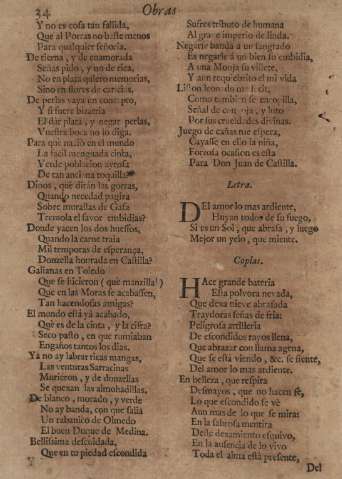 24 Obras
Y no es cosa tan fallida,
Que al Porras no baste menos
Para qualquier señoria.
De tierna, y de enamorada
Señas pido, y no de rica,
No en plata quiero memorias,
Sino en flores de caricias.
De perlas vaya en concepto,
Y si fuere bizarria
El dar plata, y negar perlas,
Vuestra boca no lo diga.
Para que naciò en el mundo
La facil menguada cinta,
Verde poblacion
De tan anciana ropilla?
Dinos, què diràn las gorras,
Quando necedad pagiza
Sobre murallas de Gasa
Tremola el favor embidias?
Donde yacen los dos huessos,
Quando la carne traia
Mil temporas de esperança,
Donzella honrada en Castilla?
Galianas en Toledo
Que se hicieron (què manzilla!)
Que en las Moras se acabassen,
Tan hacendosas amigas?
El mundo està yà acabado,
Què es de la cinta, y la cifra?
Seco pasto, en que rumiaban
Engaños tantos los dias.
Yà no ay labrar ricas mangas,
Las venturas Sarracinas
Murieron, y de donzellas
Se quexan las almohadillas.
De blanco, morado, y verde
No ay banda, con que salia
Un rabanico de Olmedo
El buen Duque de Medina.
Bellissima descuidada,
Que en tu piedad escondida
Sufres tributo de humana
Al grave imperio de linda.
Negarle banda à un sangrado
Es negarle à un bien su embidia,
A una Monja su villete,
Y à un requiebrito el mi vida
Liston
Como tambien
Señal de congoja, y luto
Por sus crueldades divinas.
Juego de cañas me espera,
Cayasse en ello la niña,
Forçosa ocasion es esta
Para Don Juan de Castilla.
Letra.
DEl amor lo mas ardiente,
Huyan todos de su fuego,
Si es un Sol, que abrasa, y luego
Mejor un yelo, que miente.
Coplas.
HAce grande bateria
Esta polvora nevada,
Que dexa nieve abrasada
Traydoras señas de fria:
Peligrosa artilleria
De escondidos rayos llena,
Que abrazar con llama agena,
Que se està viendo, &c. se siente,
Del amor lo mas ardiente.
En belleza, que respira
Desmayos, que no hacen fè,
Lo que escondido se vè
Aun mas de lo que se miras
En la sabrosa mentira
Deste desamiento esquivo,
En la ausencia de lo vivo
Toda el alma està presente,
Del